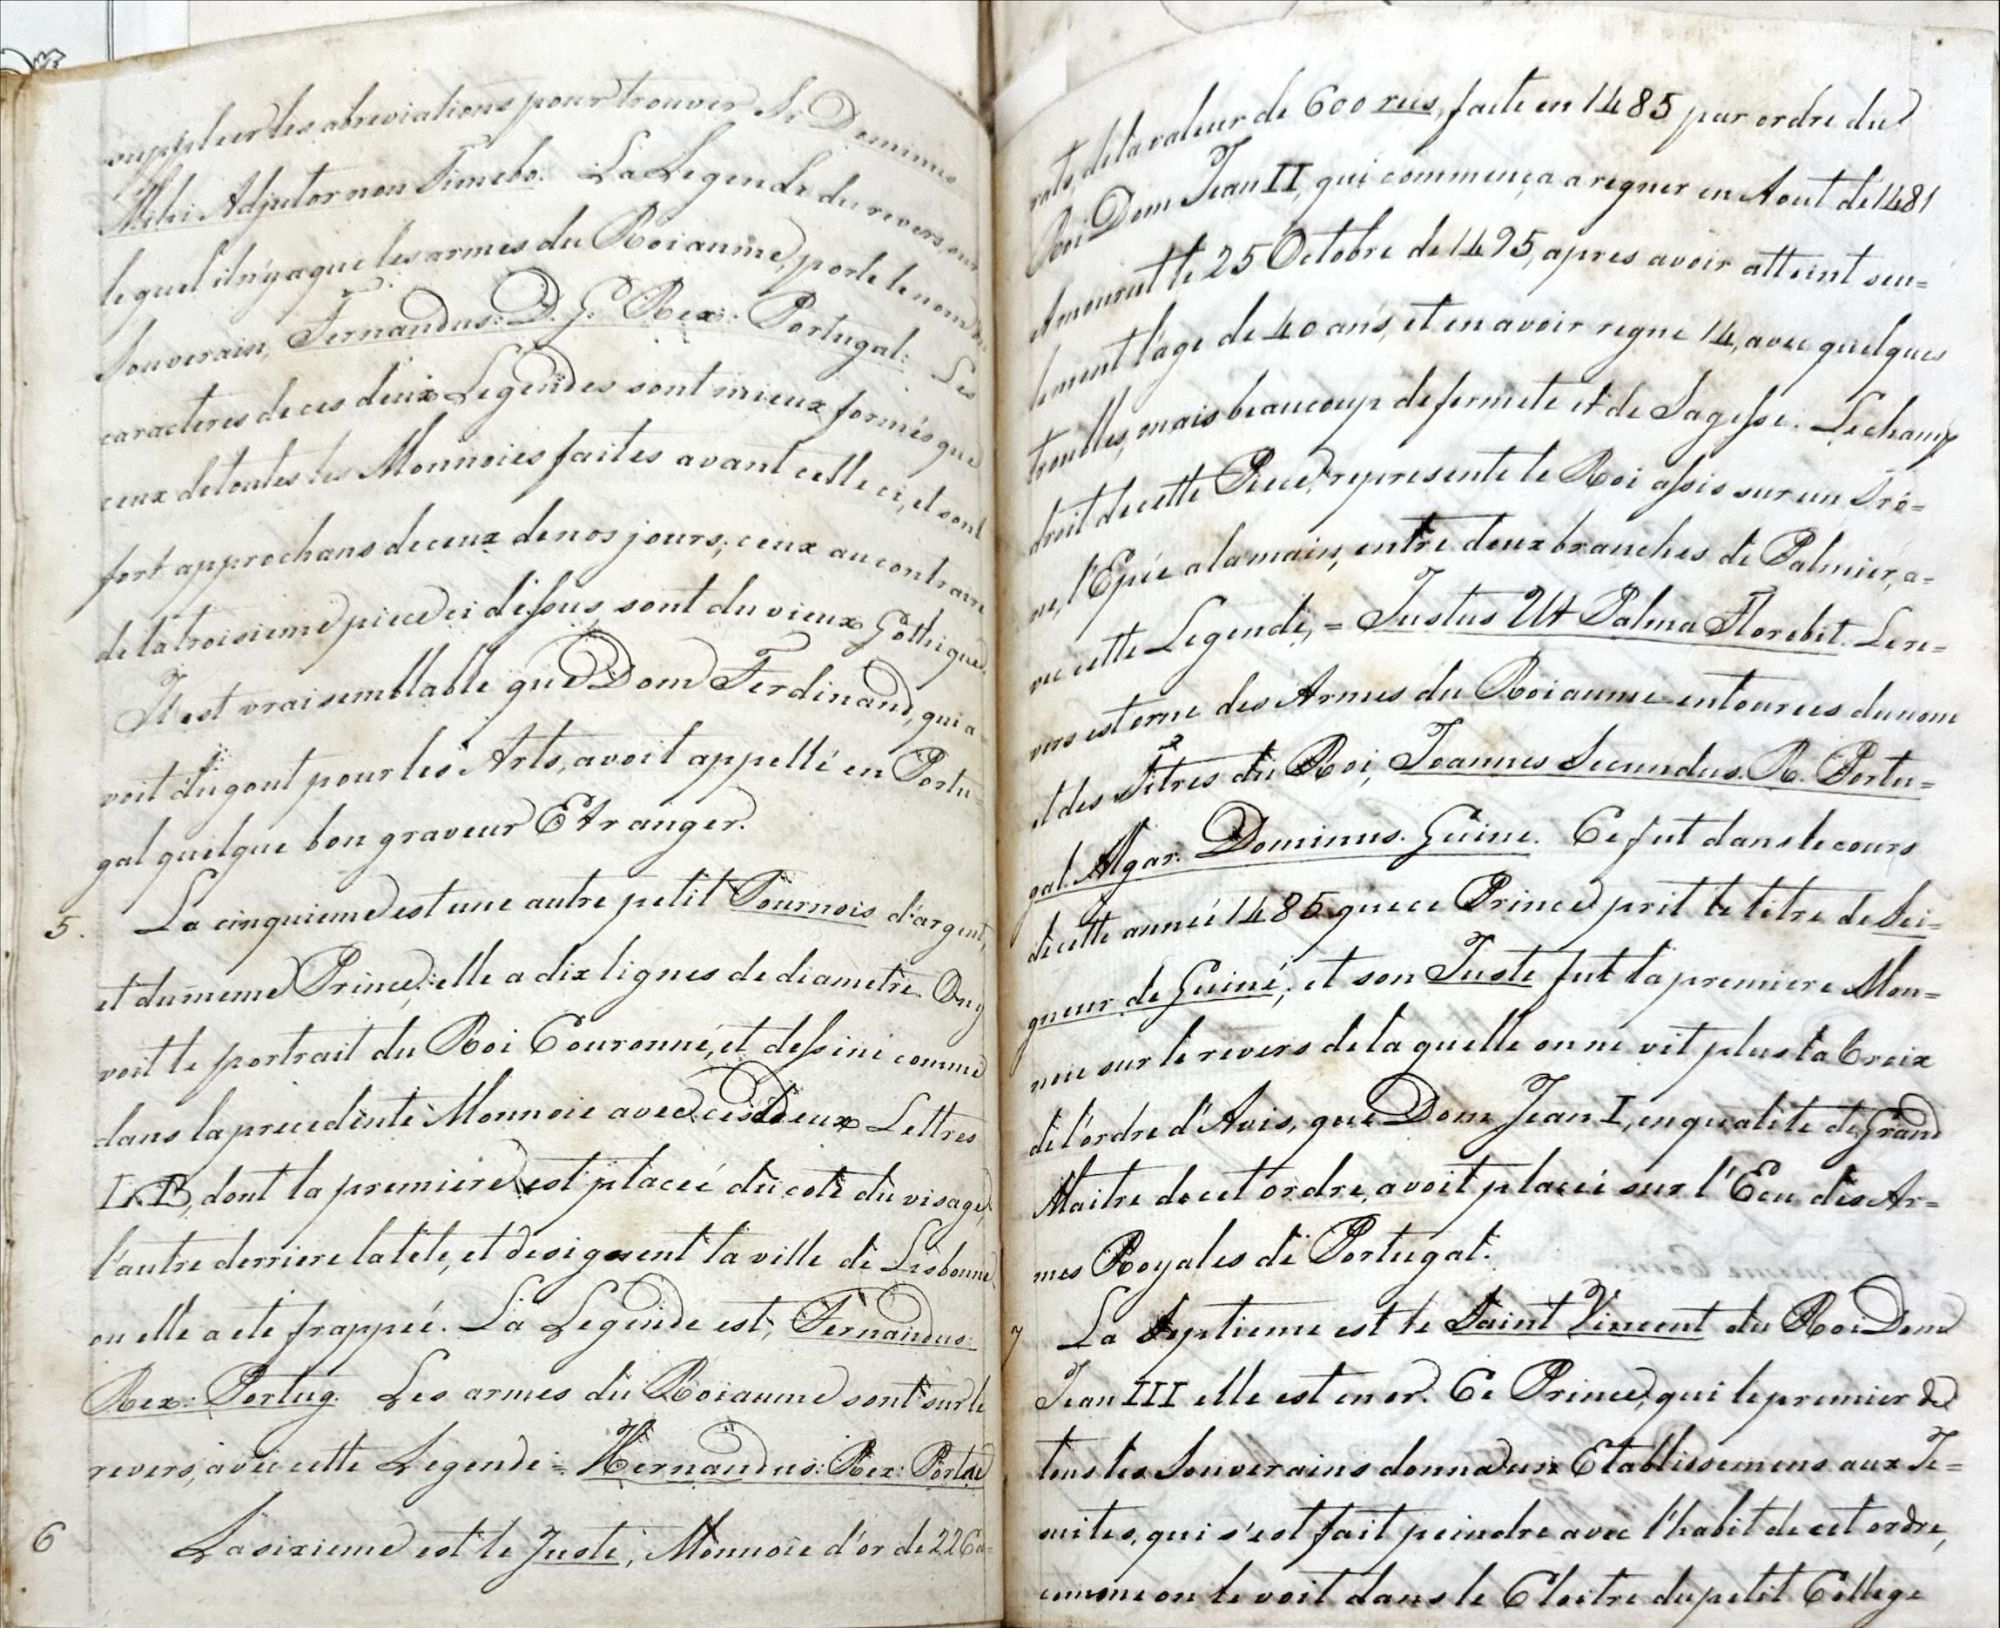 suppleer les abreviations pour trouver Si Dominus
Mihi Adjutor non Timebo. La Legende du revers sur
lequel il n'y a que les armes du Roiaume, porte le nom du
Souverain, Fernandus: D. G: Rex: Portugal: Les
caracteres de ces deux Legendes sont mieux formés que
ceux de toutes les Monnoies faites avant celle ci, et sont
fort approchans de ceux de nos jours; ceux au contraire
de la troisieme piece ci dessus, sont du vieux Gothique.
Il est vraisemblable que Dom Ferdinand, qui a-
voit du gout pour les Arts, avoit appellé en Portu-
gal quelque bon graveur Etranger.
5. La cinquieme est une autre petit Tournois d'argent,
et du meme Prince; elle a dix lignes de diametre. On y
voit le portrait du Roi Couronné, et dessiné comme
dans la precedente Monnoie avec ces Deux Lettres
L. B, dont la premiere est placeé du coté du visage,
l'autre derriere la tete, et designent la ville de Lisbonne
ou elle a eté frappeé. La Legende est, Fernandus:
Rex: Portug. Les armes du Roiaume sont sur le
revers, avec cette Legende = Hernandus: Rex: Portu
6 La sixieme est le Juste, Monnoie d'or de 22 Ca=
rats, de la valeur de 600 reis, faite en 1485 par ordre du
Roi Dom Jean II, qui commença a regner en Aout de 1481
et mourut le 25 Octobre de 1495, apres avoir atteint seu=
lement l'age de 40 ans, et en avoir regné 14, avec quelques
troubles, mais beaucoup de fermeté et de Sagesse. Le champ
droit de cette Piece, represente le Roi assis sur un Trô=
ne, l'Epée a la main, entre deux branches de Palmier, a=
vec cette Legende, = Justus Ut Palma Florebit. Le re=
vers est orné des Armes du Roiaume entourees du nom
et des Titres du Roi, Joannes Secundus. R. Portu=
gal. Algar. Dominus. Guine. Ce fut dans le cours
de cette anneé 1485 que ce Prince prit le titre de Sei=
gneur de Guiné, et son Juste fut la premiere Mon=
noie sur le revers de laquelle on ne vit plus la Croix
de l'ordre d'Avis, que Dom Jean I, en qualité de Grand
Maitre de cet ordre, avoit placeé sur l'Ecu des Ar=
mes Royales de Portugal.
7 La Septieme est le Saint Vincent du Roi Dom
Jean III elle est en or. Ce Prince, qui le premier de
tous les Souverains donna un Etablissemens aux Je=
suites, qui s'est fait peindre avec l'habit de cet ordre,
comme on le voit dans le Cloitre du petit College